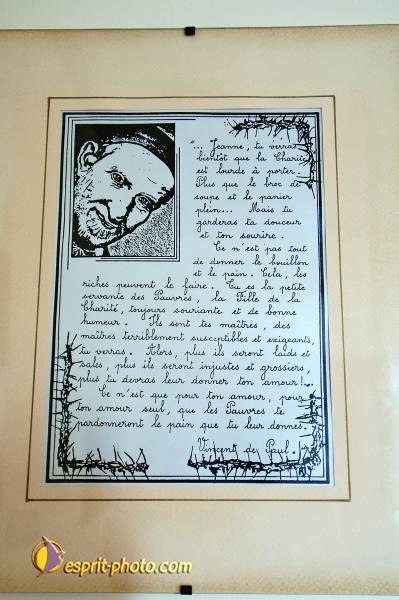 "... Jeanne, tu verras
bientôt que la Charité
est lourde à porter.
Plus que le broc de
soupe et le panier
plein... Mais tu
garderas ta douceur
et ton sourire.
Ce n'est pas tout
de donner le bouillon
et le pain. Cela, les
riches peuvent le faire. Tu es la petite
servante des Pauvres, la Fille de la
Charité, toujours souriante et de bonne
humeur. Ils sont tes maîtres, des
maîtres terriblement susceptibles et exigeants,
tu verras. Alors, plus ils seront laids et
sales, plus ils seront injustes et grossiers,
plus tu devras leur donner ton amour!..
Ce n'est que pour ton amour, pour
ton amour seul, que les Pauvres te
pardonneront le pain que tu leur donnes.
Vincent de Paul.
esprit-photo.com